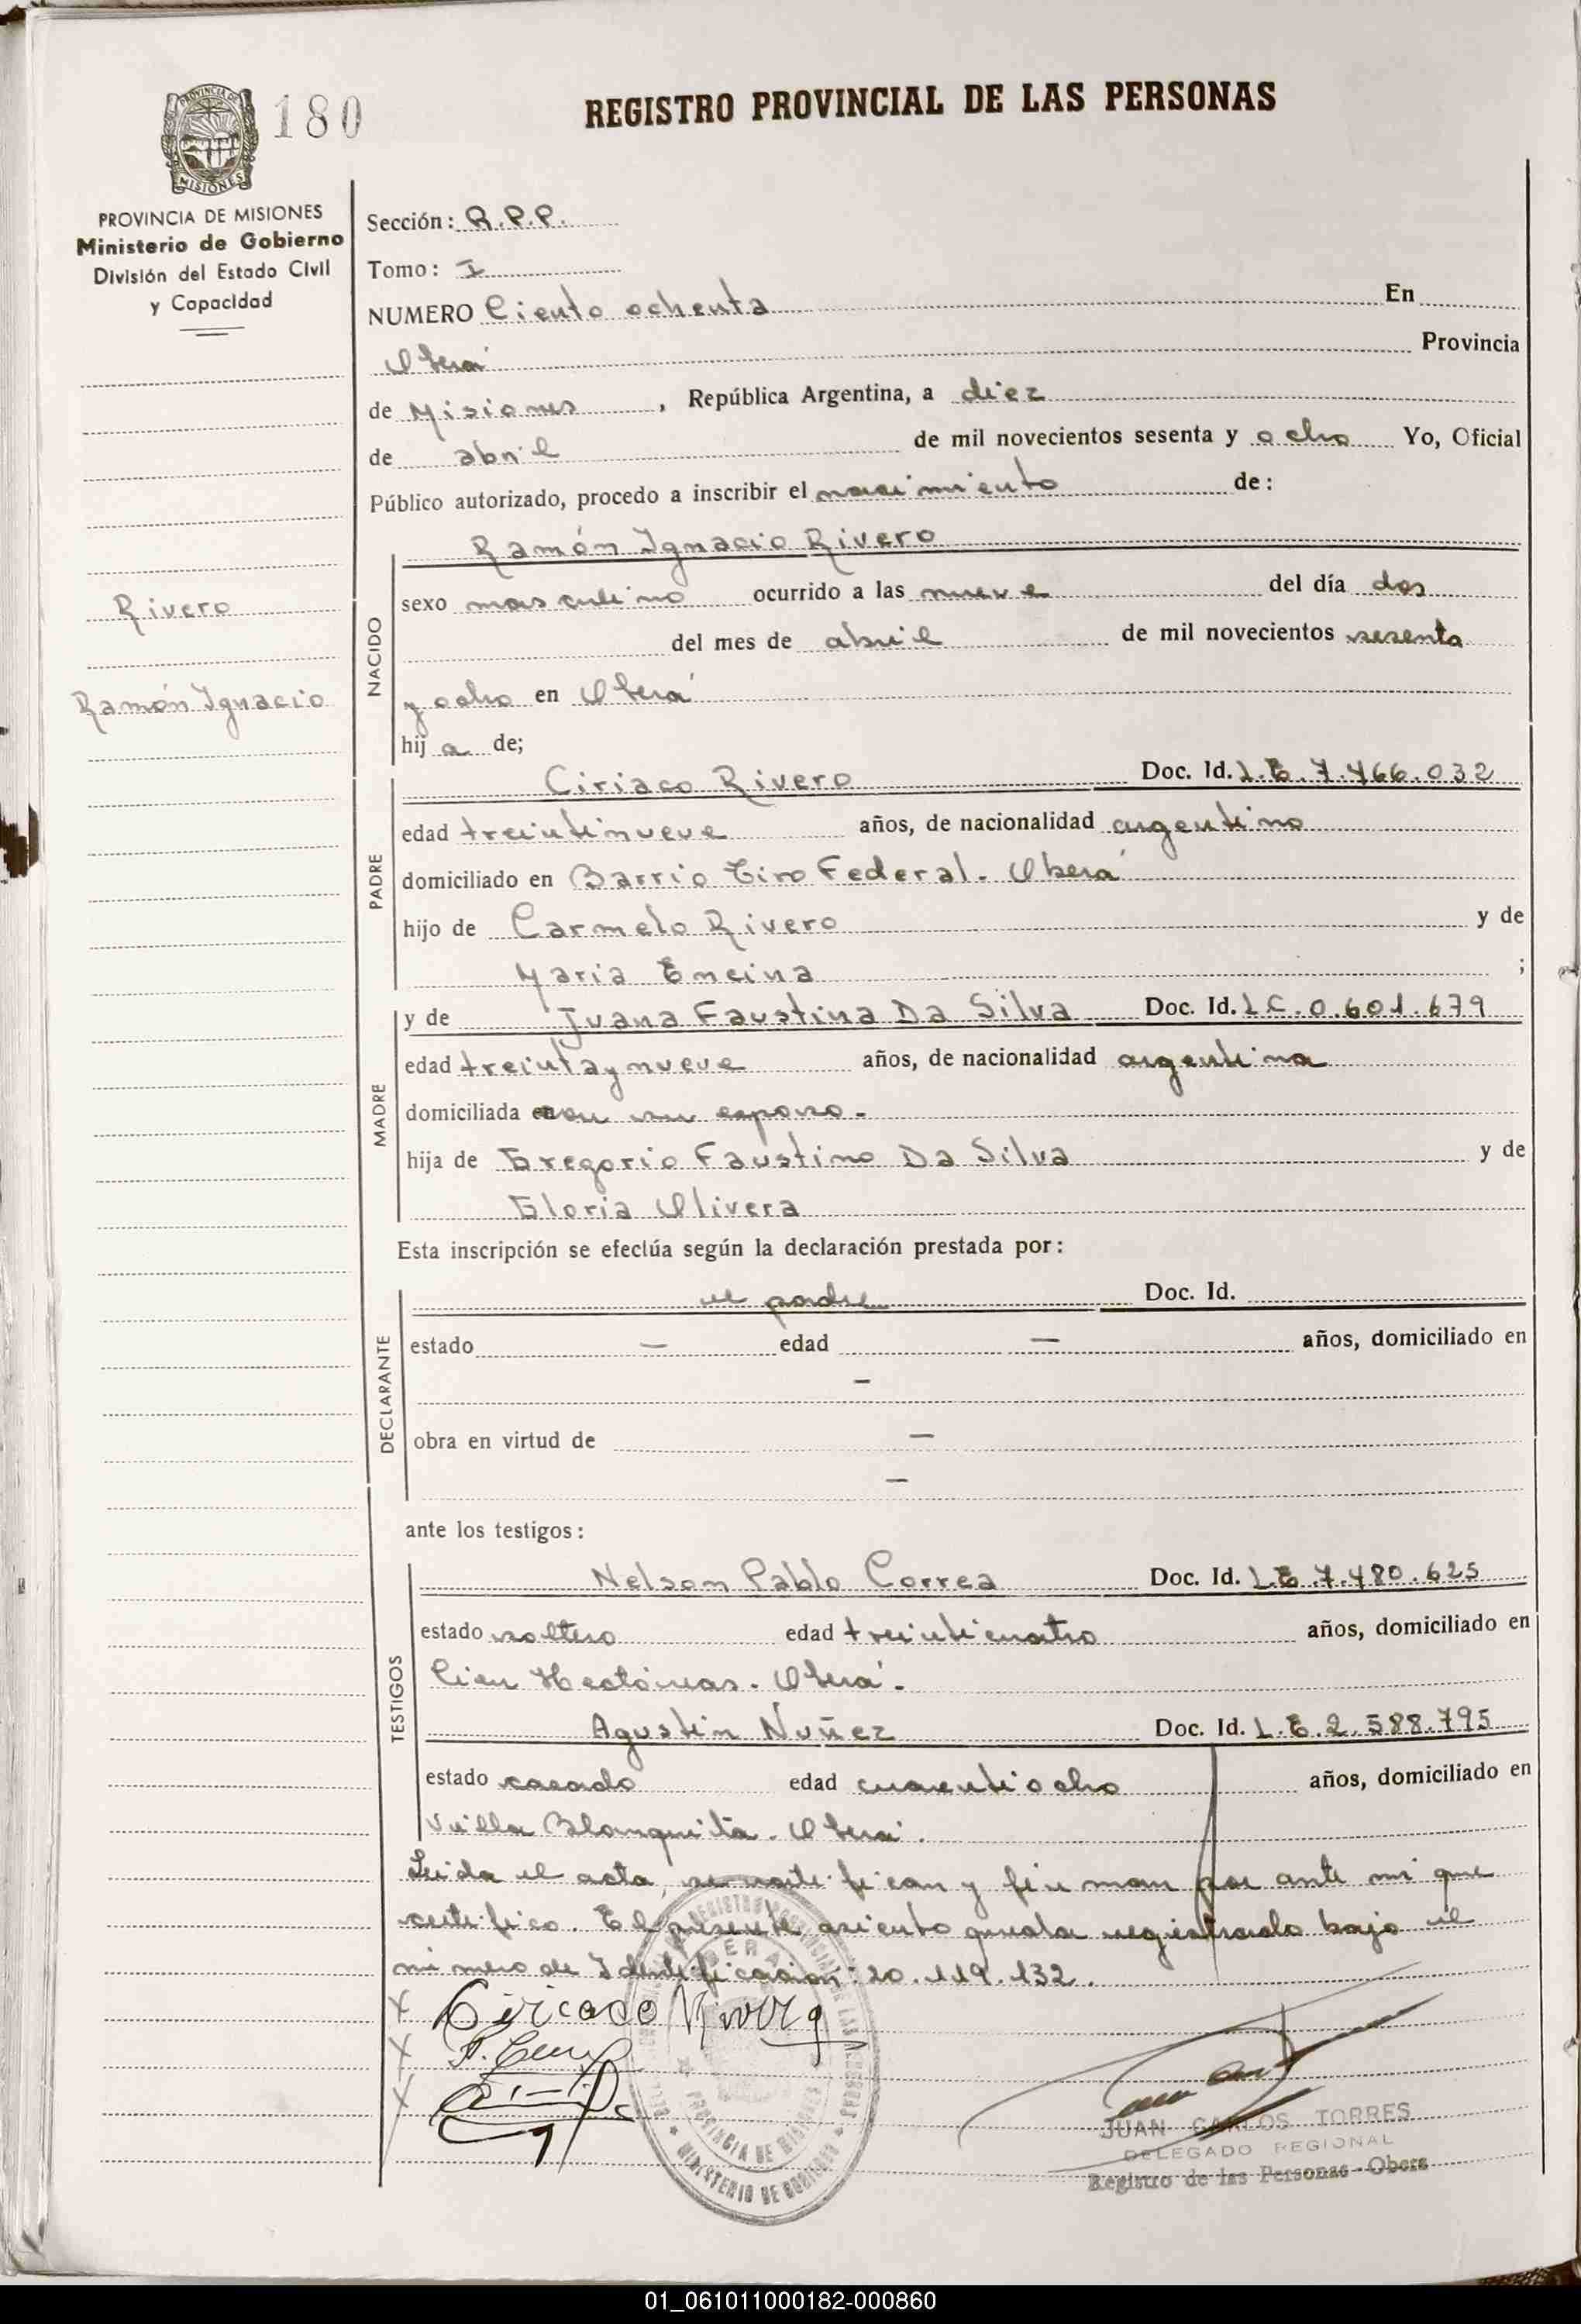 180
REGISTRO PROVINCIAL DE LAS PERSONAS
PROVINCIA DE MISIONES
Ministerio de Gobierno
División del Estado Civil
y Capacidad
Rivero
Ramón Ignacio
Sección: R.P.P.
Tomo: I
NUMERO Ciento ochenta En
Oberá Provincia
de Misiones, República Argentina, a diez
de abril de mil novecientos sesenta y ocho Yo, Oficial
Público autorizado, procedo a inscribir el nacimiento de:
NACIDO
Ramón Ignacio Rivero
sexo masculino ocurrido a las nueve del día dos
del mes de abril de mil novecientos sesenta
y ocho en Oberá
hij a de;
PADRE
Ciriaco Rivero Doc. Id. L.E. 7.466.032
edad treintinueve años, de nacionalidad argentino
domiciliado en Barrio Tiro Federal. Oberá
hijo de Carmelo Rivero y de
Maria Encina ;
MADRE
y de Juana Faustina Da Silva Doc. Id. L.C. 0.601.679
edad treintaynueve años, de nacionalidad argentina
domiciliada con su esposo.
hija de Gregorio Faustino Da Silva y de
Gloria Olivera
Esta inscripción se efectúa según la declaración prestada por:
DECLARANTE
el padre Doc. Id.
estado — edad — años, domiciliado en
—
obra en virtud de —
—
ante los testigos:
TESTIGOS
Nelson Pablo Correa Doc. Id. L.E. 7.480.625
estado soltero edad treinticuatro años, domiciliado en
Cien Hectáreas. Oberá.
Agustin Nuñez Doc. Id. L.E. 2.588.795
estado casado edad cuarentiocho años, domiciliado en
Villa Blanquita. Oberá.
Leida el acta, se ratifican y firman por ante mi que
certifico. El presente asiento queda registrado bajo el
número de Identificación: 20.119.132.
X Ciricaco Rivero
X
X
PROVINCIA DE MISIONES
MINISTERIO DE GOBIERNO
JUAN CARLOS TORRES
DELEGADO REGIONAL
Registro de las Personas - Obera
01_061011000182-000860